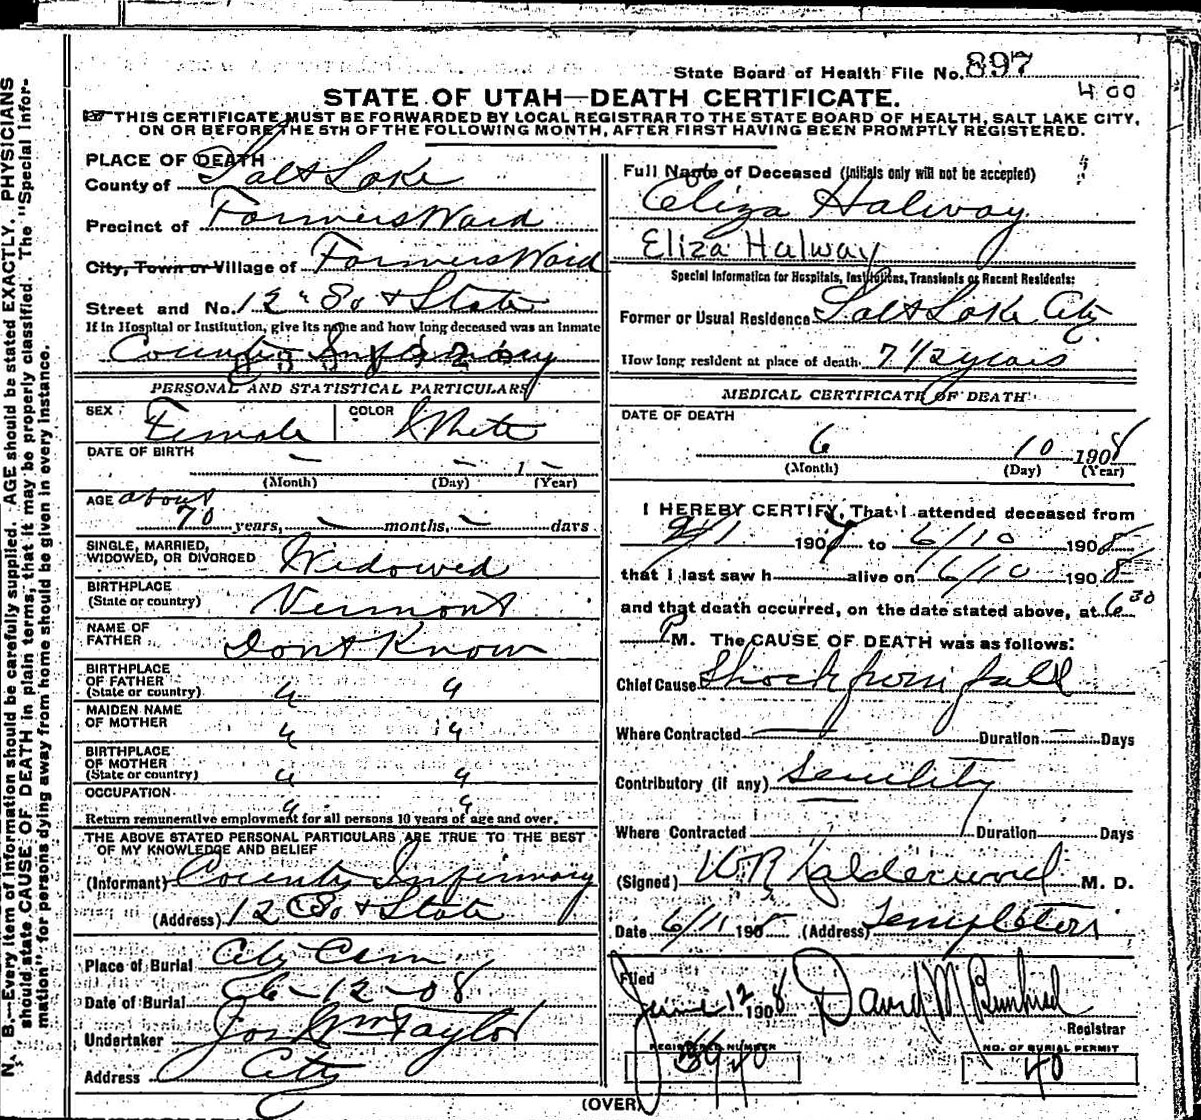 State Board of Health File No. 897
400
STATE OF UTAH—DEATH CERTIFICATE.
THIS CERTIFICATE MUST BE FORWARDED BY LOCAL REGISTRAR TO THE STATE BOARD OF HEALTH, SALT LAKE CITY,
ON OR BEFORE THE 5TH OF THE FOLLOWING MONTH, AFTER FIRST HAVING BEEN PROMPTLY REGISTERED.
N. B.—Every item of information should be carefully supplied. AGE should be stated EXACTLY. PHYSICIANS
should state CAUSE OF DEATH in plain terms, that it may be properly classified. The "Special Infor-
mation" for persons dying away from home should be given in every instance.
PLACE OF DEATH
County of Salt Lake
Precinct of Farmers Ward
City, Town or Village of Farmers Ward
Street and No. 12" So & State
If in Hospital or Institution, give its name and how long deceased was an inmate
County Infirmary
PERSONAL AND STATISTICAL PARTICULARS
SEX Female COLOR White
DATE OF BIRTH
(Month) (Day) (Year)
AGE about
70 years, — months, — days
SINGLE, MARRIED,
WIDOWED, OR DIVORCED Widowed
BIRTHPLACE
(State or country) Vermont
NAME OF
FATHER Dont Know
BIRTHPLACE
OF FATHER
(State or country) " "
MAIDEN NAME
OF MOTHER " "
BIRTHPLACE
OF MOTHER
(State or country) " "
OCCUPATION " "
Return remunerative employment for all persons 10 years of age and over.
THE ABOVE STATED PERSONAL PARTICULARS ARE TRUE TO THE BEST
OF MY KNOWLEDGE AND BELIEF
(Informant) County Infirmary
(Address) 12 So & State
Place of Burial City Cem
Date of Burial 6-12-08
Undertaker Jos Wm Taylor
Address City
Full Name of Deceased (Initials only will not be accepted)
Eliza Halway
Eliza Halway
Special Information for Hospitals, Institutions, Transients or Recent Residents:
Former or Usual Residence Salt Lake City
How long resident at place of death 7 1/2 years
MEDICAL CERTIFICATE OF DEATH
DATE OF DEATH
6 10 1908
(Month) (Day) (Year)
I HEREBY CERTIFY, That I attended deceased from
1908 to 6/10 1908
that I last saw h alive on 6/10 1908
and that death occurred, on the date stated above, at 6 30
P M. The CAUSE OF DEATH was as follows:
Chief Cause Shock from fall
Where Contracted — Duration — Days
Contributory (if any) Senility
Where Contracted Duration Days
(Signed) W R Calderwood M. D.
Date 6/11 1908 (Address) Templeton
Filed
June 12 1908 David M
Registrar
REGISTERED NUMBER
NO. OF BURIAL PERMIT
40
(OVER)